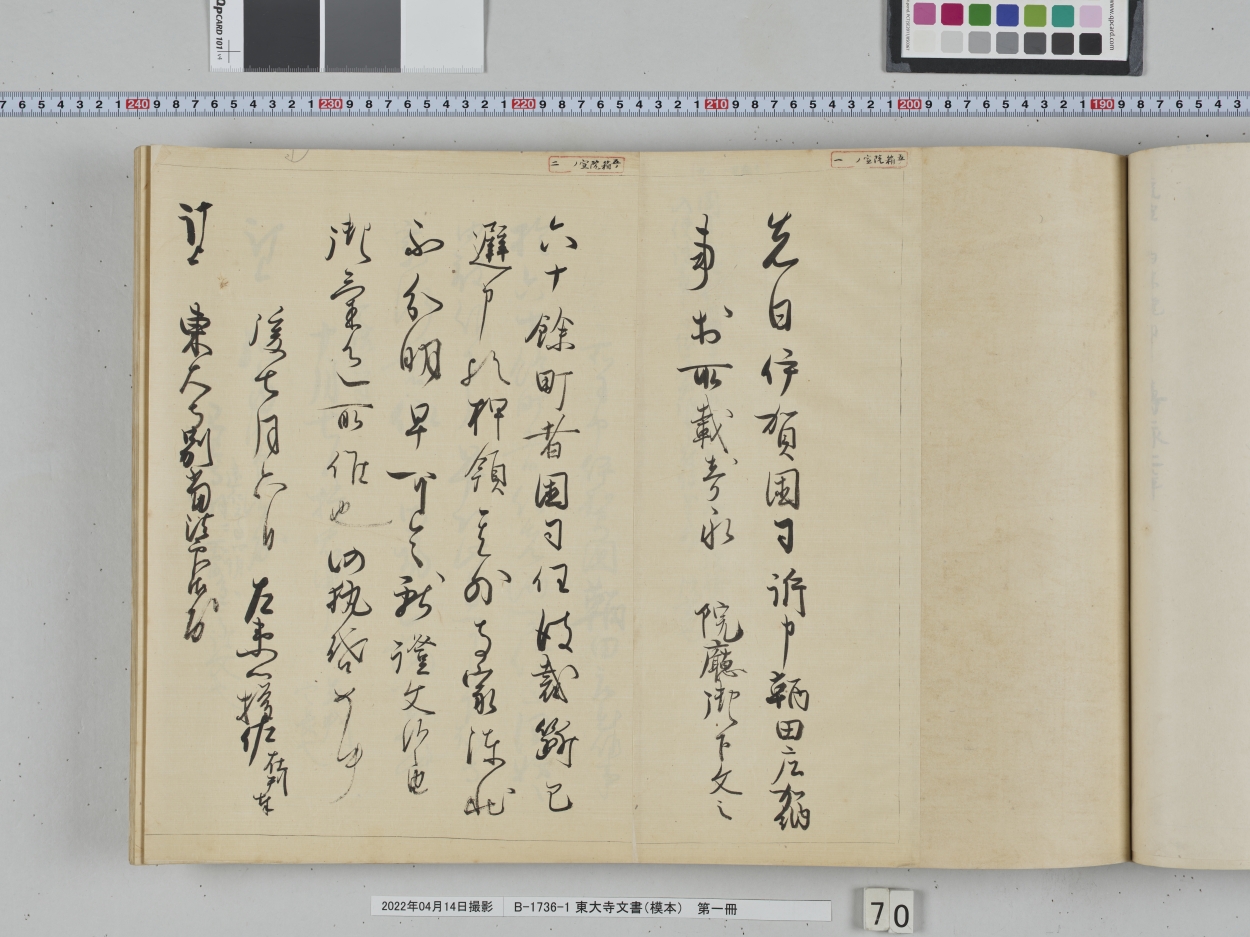 先日伊賀国司訴申鞆田庄加納
事於所載寿永 院廳御下文之
六十餘町者国司任彼裁断已
避申於押領之外者寺家陳状
不分明早可令献證文給也
御気色所候也仍執啓如件
後七月六日 左衛門権佐
謹上 東大寺別当法印御房
五箱院宣ノ一
五箱院宣ノ二
2022年04月14日撮影 B-1736-1 東大寺文書(模本) 第一冊
70
QPCARD 101 v4
www.qpcard.com
7 6 5 4 3 2 1 240 9 8 7 6 5 4 3 2 1 230 9 8 7 6 5 4 3 2 1 220 9 8 7 6 5 4 3 2 1 210 9 8 7 6 5 4 3 2 1 200 9 8 7 6 5 4 3 2 1 190 9 8 7 6 5 4 3